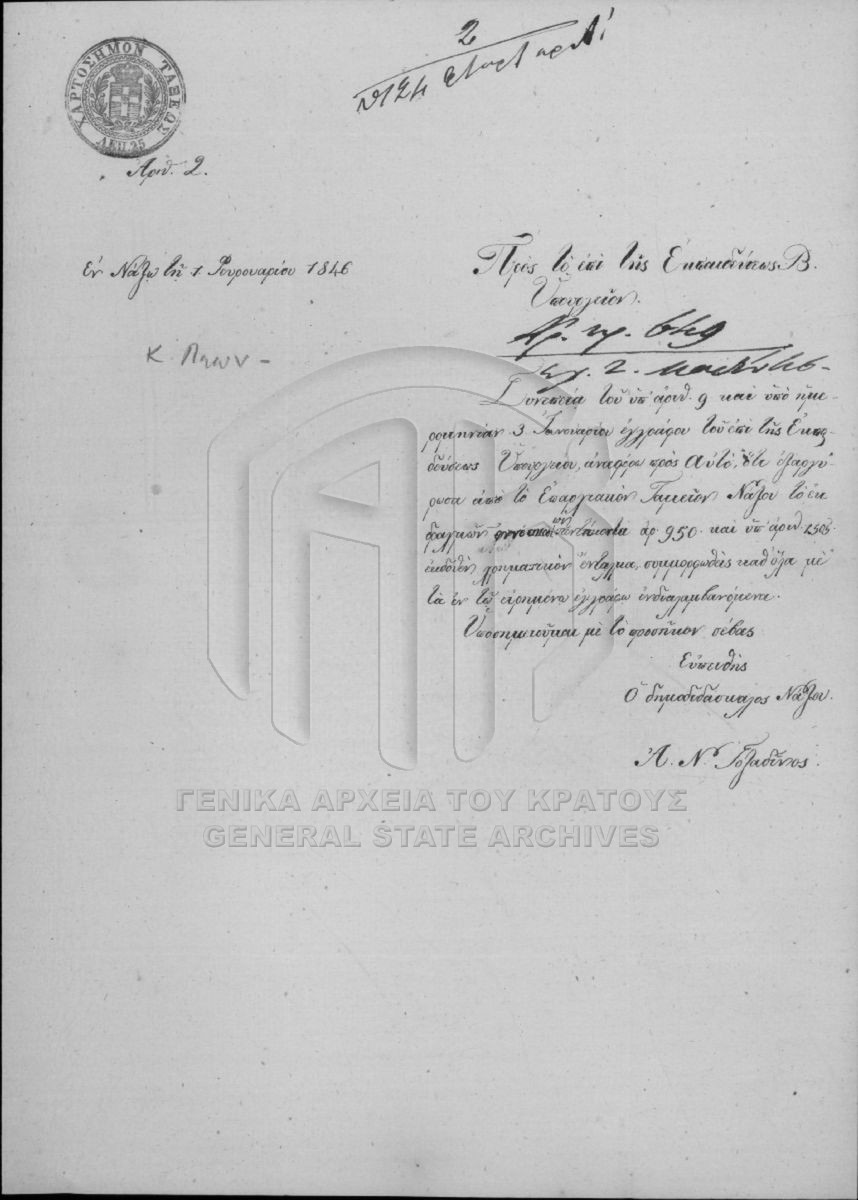 ΧΑΡΤΟΣΗΜΟΝ ΤΑΞΕΩΣ
ΛΕΠ. 25
2
Ἀριθ. 2.
Ἐν Νάξῳ τῇ 1 Φευρουαρίου 1846
Πρὸς τὸ ἐπὶ τῆς Ἐκπαιδεύσεως Β.
Ὑπουργεῖον.
Ἀρ. πρ. 649
Κ.
Συνεπείᾳ τοῦ ὑπ' ἀριθ. 9 καὶ ὑπὸ ἡμε-
ρομηνίαν 3 Ἰανουαρίου ἐγγράφου τοῦ ἐπὶ τῆς Ἐκπαι-
δεύσεως Ὑπουργείου, ἀναφέρω πρὸς Αὐτό, ὅτι ἐξαργύ-
ρωσα ἀπὸ τὸ Ἐπαρχιακὸν Ταμεῖον Νάξου τὸ ἐκ
δραχμῶν πεντήκοντα ἀρ. 950. καὶ ὑπ' ἀριθ.
ἐκδοθὲν χρηματικὸν ἔνταλμα, συμμορφωθεὶς καθ' ὅλα μὲ
τὰ ἐν τῷ εἰρημένῳ ἐγγράφῳ ἐνδιαλαμβανόμενα.
Ὑποσημειοῦμαι μὲ τὸ προσῆκον σέβας
Εὐπειθὴς
Ὁ δημοδιδάσκαλος Νάξου.
Α. Ν.
ΓΕΝΙΚΑ ΑΡΧΕΙΑ ΤΟΥ ΚΡΑΤΟΥΣ
GENERAL STATE ARCHIVES